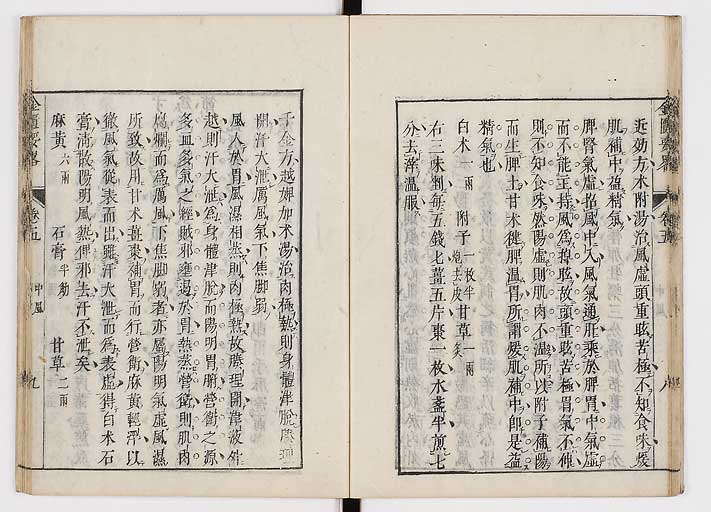 金匱要畧 卷五 中風 八
近効方朮附湯治風虛頭重眩苦極不知食味煖
肌補中益精氣
脾腎氣虛招風中入風氣通肝乘於脾胃中氣虛
而不能主持風為掉眩故頭重眩苦極胃氣不伸
則不知食味然陽虛則肌肉不溫所以附子補陽
而生脾土甘朮健脾溫胃所謂煖肌補中即是益
精氣也
白朮一兩 附子一枚半炮去皮 甘草一兩炙
右三味剉每五錢七薑五片棗一枚水盞半煎七
分去滓溫服
千金方越婢加朮湯治肉極熱則身體津脫腠理
開汗大泄厲風氣下焦脚弱
風入於胃風濕相蒸則肉極熱故腠理開津液外
越則汗大泄為身體津脫而陽明胃腑營衛之源
多血多氣之經賊邪壅遏於胃熱蒸營衛則肌肉
腐爛而為厲風下焦脚弱者亦屬陽明氣虛風濕
所致故用甘朮薑棗補胃而行營衛麻黃輕浮以
徹風氣從表而出雖汗大泄而為表虛得白朮石
膏清散陽明風熱俾邪去汗不泄矣
麻黃六兩 石膏半觔 甘草二兩
金匱要畧 卷五 中風 九